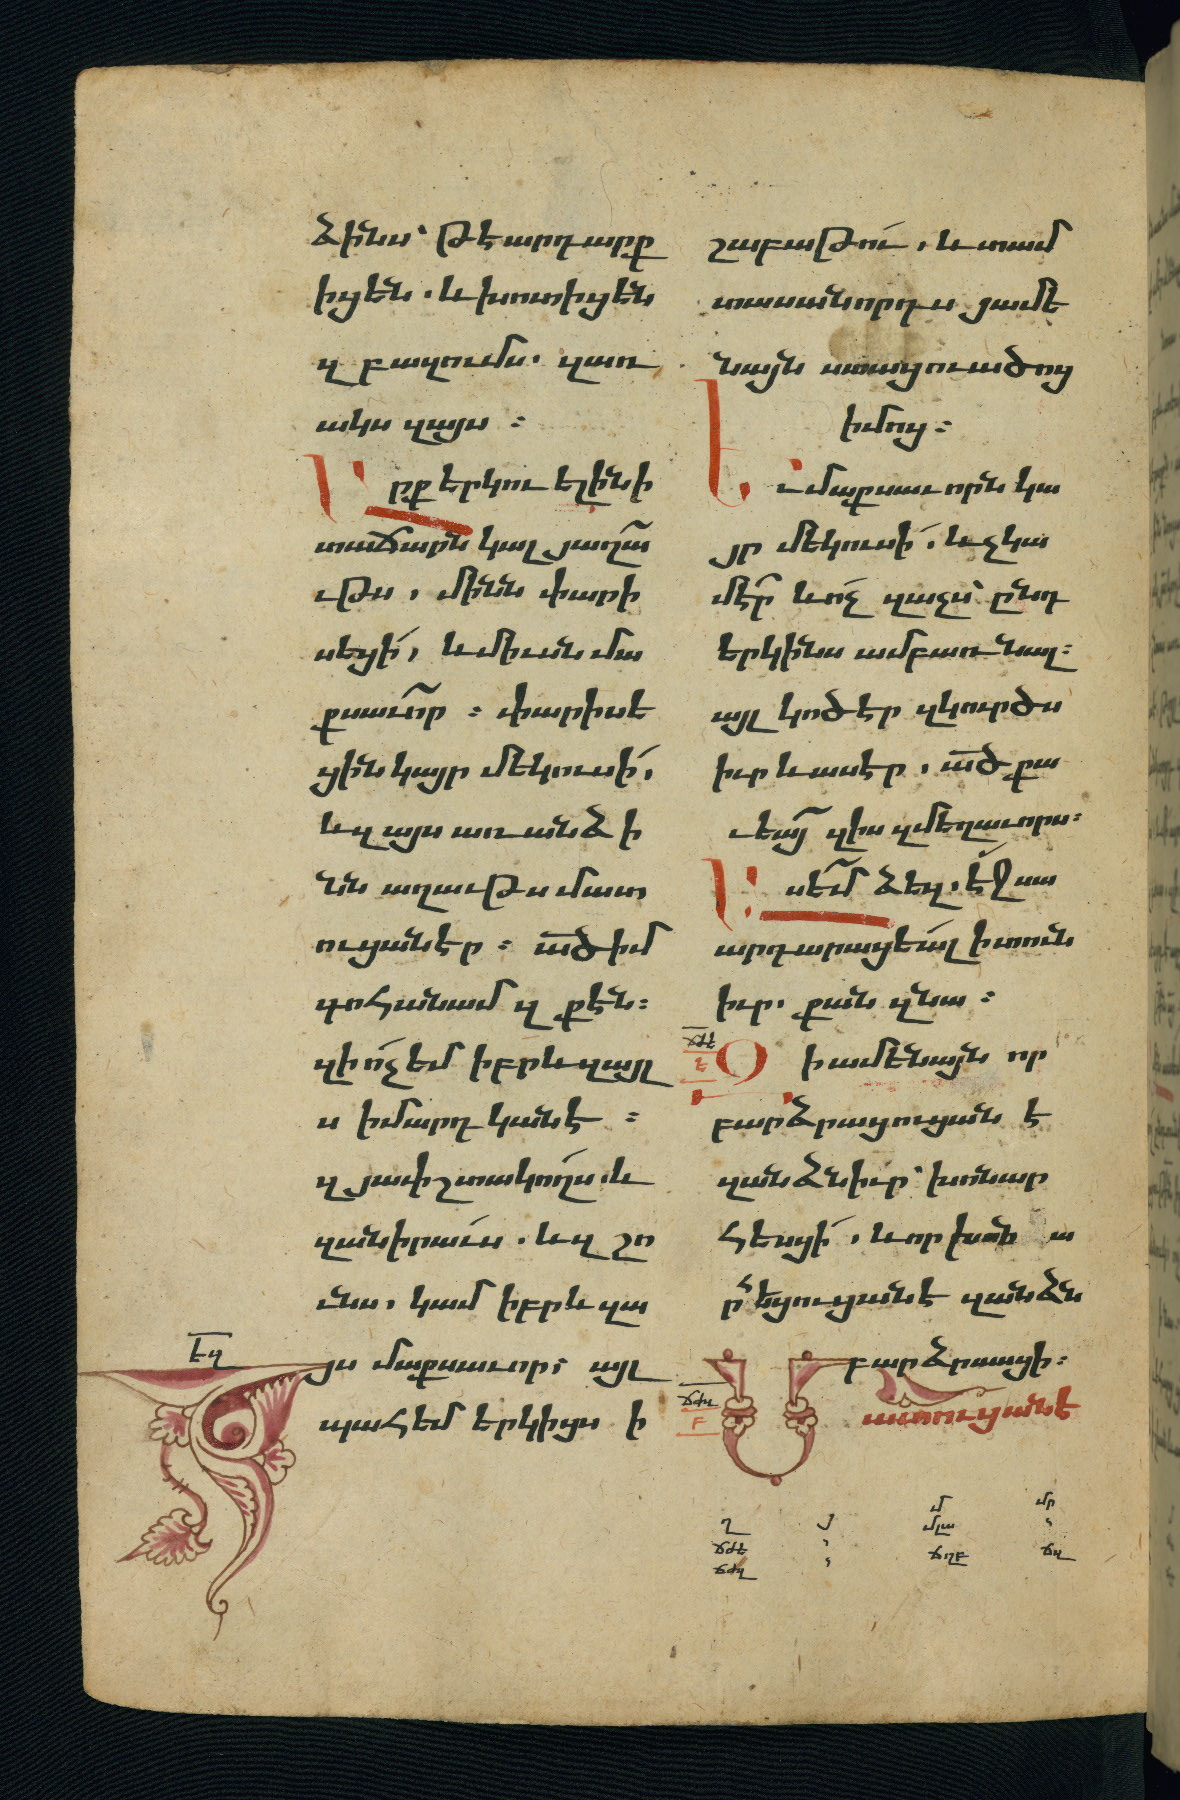 ձինս՝ թէ արդարք
իցեն. և խոտիցեն
զբազումս. զառ
ակս զայս :
Արք երկու ելին ի
տաճարն կալ յաղա՜
ւթս, մինն փարի
սեցի, և միւսն մա
քսաւո՜ր : փարիսե
ցին կայր մեկուսի,
և զայս առանձի
նն աղաւթս մատ
ուցանէր : ա՜ծ իմ
գոհանամ զքէն:
զի ոչ եմ իբրև զայլ
ս ի մարդկանէ :
զյափշտակողս. և
զանիրաւս. և զշո
ւնս, կամ իբրև զա
յս մաքսաւոր: այլ
պահեմ երկիցս ի
շաբաթու, և տամ
տասանորդս յամե
նայն ստացուածոյ
իմոյ:
Եւ մաքսաւորն կա
յր մեկուսի, և չկա
մէ՜ր և ոչ զաչս՝ ընդ
երկինս ամբառնալ:
այլ կոծէր զկուրծս
իւր և ասէր, ա՜ծ քա
ւեա՜ զիս զմեղաւորս:
Ասե՜մ ձեզ. էջ սա
արդարացեալ ի տուն
իւր. քան զնա :
Զի ամենայն որ
բարձրացուցանէ
զանձն իւր՝ խոնար
հեսցի, և որ խոնա
րհեցուցանէ զանձն
բարձրասցի:
Մատուցանէ